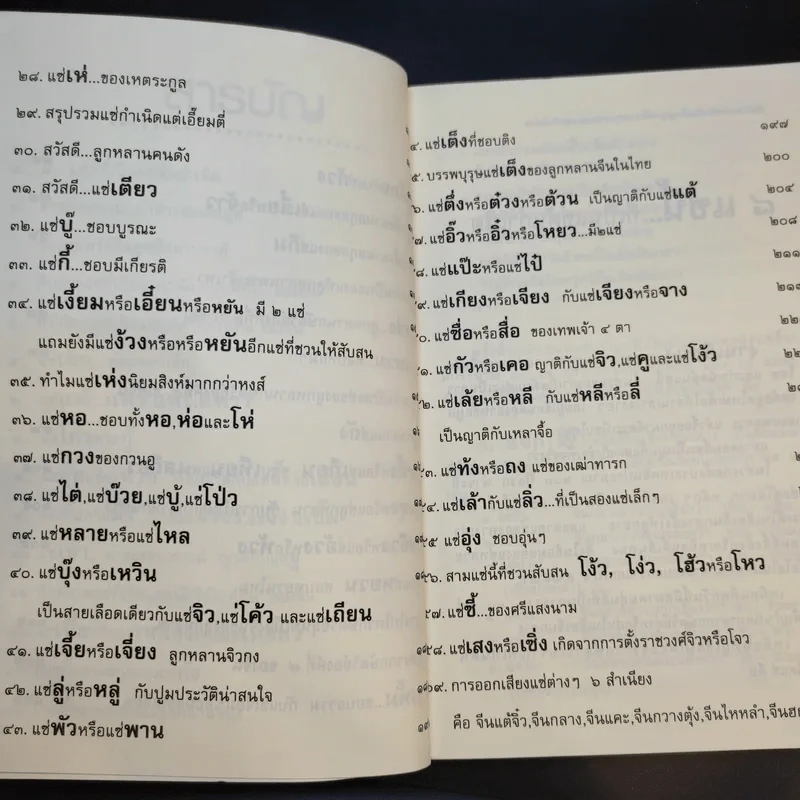 ๒๘. แซ่เห่...ของเหตระกูล
๒๙. สรุปรวมแซ่กำเนิดแต่เอี๊ยมตี่
๓๐. สวัสดี...ลูกหลานคนดัง
๓๑. สวัสดี...แซ่เตียว
๓๒. แซ่บู๊...ชอบบูรณะ
๓๓. แซ่กี้...ชอบมีเกียรติ
๓๔. แซ่เงี้ยมหรือเอี๋ยนหรือหยัน มี ๒ แซ่
แถมยังมีแซ่ง้วงหรือหรือหยันอีกแซ่ที่ชวนให้สับสน
๓๕. ทำไมแซ่เห่งนิยมสิงห์มากกว่าหงส์
๓๖. แซ่หอ...ชอบทั้งหอ,ห่อและโห่
๓๗. แซ่กวงของกวนอู
๓๘. แซ่ไต่,แซ่บ๊วย,แซ่บู้,แซ่โป่ว
๓๙. แซ่หลายหรือแซ่ไหล
๔๐. แซ่บุ๊งหรือเหวิน
เป็นสายเลือดเดียวกับแซ่จิว,แซ่โค้ว และแซ่เถียน
๔๑. แซ่เจี้ยหรือเจี่ยง ลูกหลานจิวกง
๔๒. แซ่ลู่หรือหลู่ กับปูมประวัติน่าสนใจ
๔๓. แซ่พัวหรือแซ่พาน
๔. แซ่เต็งที่ชอบติง ๑๙๗
๕. บรรพบุรุษแซ่เต็งของลูกหลานจีนในไทย ๒๐๐
๖. แซ่ตึ่งหรือต๋วงหรือต้วน เป็นญาติกับแซ่แต้ ๒๐๔
๗. แซ่อิ๊วหรืออิ๋วหรือโหยว...มี๒แซ่ ๒๐๘
๘. แซ่แป๊ะหรือแซ่ไป๋ ๒๑๑
๙. แซ่เกียงหรือเจียง กับแซ่เจียงหรือจาง ๒๑
๐. แซ่ซื่อหรือสื่อ ของเทพเจ้า ๔ ตา ๒๒
๑. แซ่กัวหรือเคอ ญาติกับแซ่จิว,แซ่คูและแซ่โง้ว ๒๒
๒. แซ่เล้ยหรือหลี กับแซ่หลีหรือลี่
เป็นญาติกับเหลาจื้อ
๓. แซ่ท้งหรือถง แซ่ของเฒ่าทารก
๔. แซ่เล้ากับแซ่ลิ่ว...ที่เป็นสองแซ่เล็กๆ
๕ แซ่อุ่ง ชอบอุ่นๆ
๖. สามแซ่นี้ที่ชวนสับสน โง้ว, โง่ว, โฮ้วหรือโหว
๗. แซ่ซี้...ของศรีแสงนาม
๘. แซ่เสงหรือเซิ่ง เกิดจากการตั้งราชวงศ์จิวหรือโจว
๙. การออกเสียงแซ่ต่างๆ ๖ สำเนียง
คือ จีนแต้จิ๋ว,จีนกลาง,จีนแคะ,จีนกวางตุ้ง,จีนไหหลำ,จีนฮ